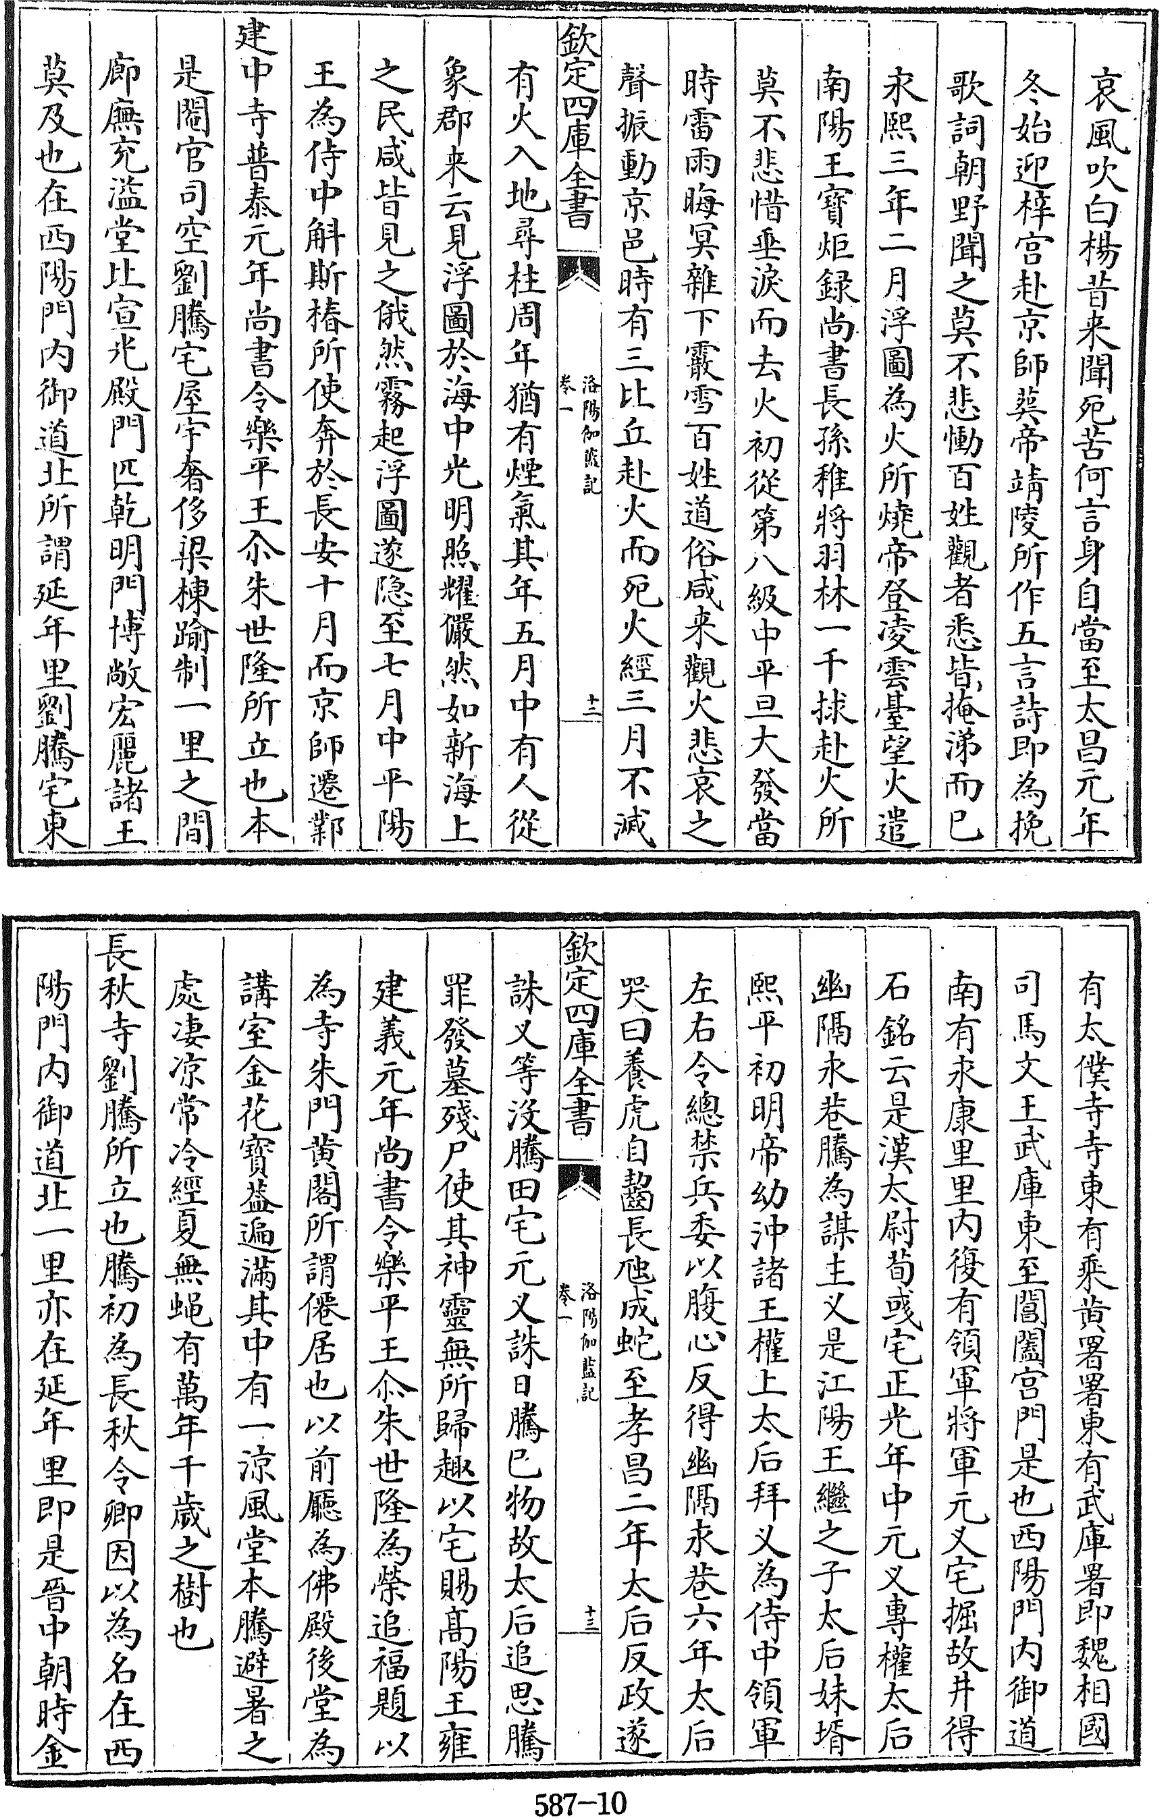 哀風吹白楊昔来聞死苦何言身自當至太昌元年
冬始迎梓宫赴京師葬帝靖陵所作五言詩即為挽
歌詞朝野聞之莫不悲慟百姓觀者悉皆掩涕而已
永熙三年二月浮圖為火所燒帝登凌雲臺望火遣
南陽王寶炬録尚書長孫稚將羽林一千捄赴火所
莫不悲惜垂淚而去火初從第八級中平旦大發當
時雷雨晦冥雜下霰雪百姓道俗咸来觀火悲哀之
聲振動京邑時有三比丘赴火而死火經三月不滅
欽定四庫全書
洛陽伽藍記
卷一
十二
有火入地尋柱周年猶有煙氣其年五月中有人從
象郡来云見浮圖於海中光明照耀儼然如新海上
之民咸皆見之俄然霧起浮圖遂隐至七月中平陽
王為侍中斛斯椿所使奔於長安十月而京師遷鄴
建中寺普泰元年尚書令樂平王尒朱世隆所立也本
是閹官司空劉騰宅屋宇奢侈梁棟踰制一里之間
廊廡充溢堂比宣光殿門匹乾明門博敞宏麗諸王
莫及也在西陽門内御道北所謂延年里劉騰宅東
有太僕寺寺東有乘黄署署東有武庫署即魏相國
司馬文王武庫東至閶闔宫門是也西陽門内御道
南有永康里里内復有領軍將軍元乂宅掘故井得
石銘云是漢太尉荀彧宅正光年中元乂專權太后
幽隔永巷騰為謀主乂是江陽王繼之子太后妹壻
熙平初明帝幼沖諸王權上太后拜乂為侍中領軍
左右令總禁兵委以腹心反得幽隔永巷六年太后
哭曰養虎自齧長虺成蛇至孝昌二年太后反政遂
欽定四庫全書
洛陽伽藍記
卷一
十三
誅乂等没騰田宅元乂誅日騰已物故太后追思騰
罪發墓殘尸使其神靈無所歸趣以宅賜髙陽王雍
建義元年尚書令樂平王尒朱世隆為榮追福題以
為寺朱門黄閣所謂僊居也以前廳為佛殿後堂為
講室金花寳葢遍滿其中有一凉風堂本騰避暑之
處凄凉常冷經夏無蝇有萬年千歲之樹也
長秋寺劉騰所立也騰初為長秋令卿因以為名在西
陽門内御道北一里亦在延年里即是晉中朝時金
587-10